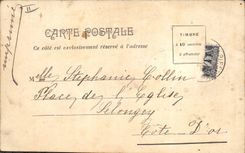 CARTE POSTALE
Ce côté est exclusivement réservé à l'adresse
TIMBRE
Imprimé
Mlle Stéphanie Collin
Place de l'Église
Selongey
Côte d'Or